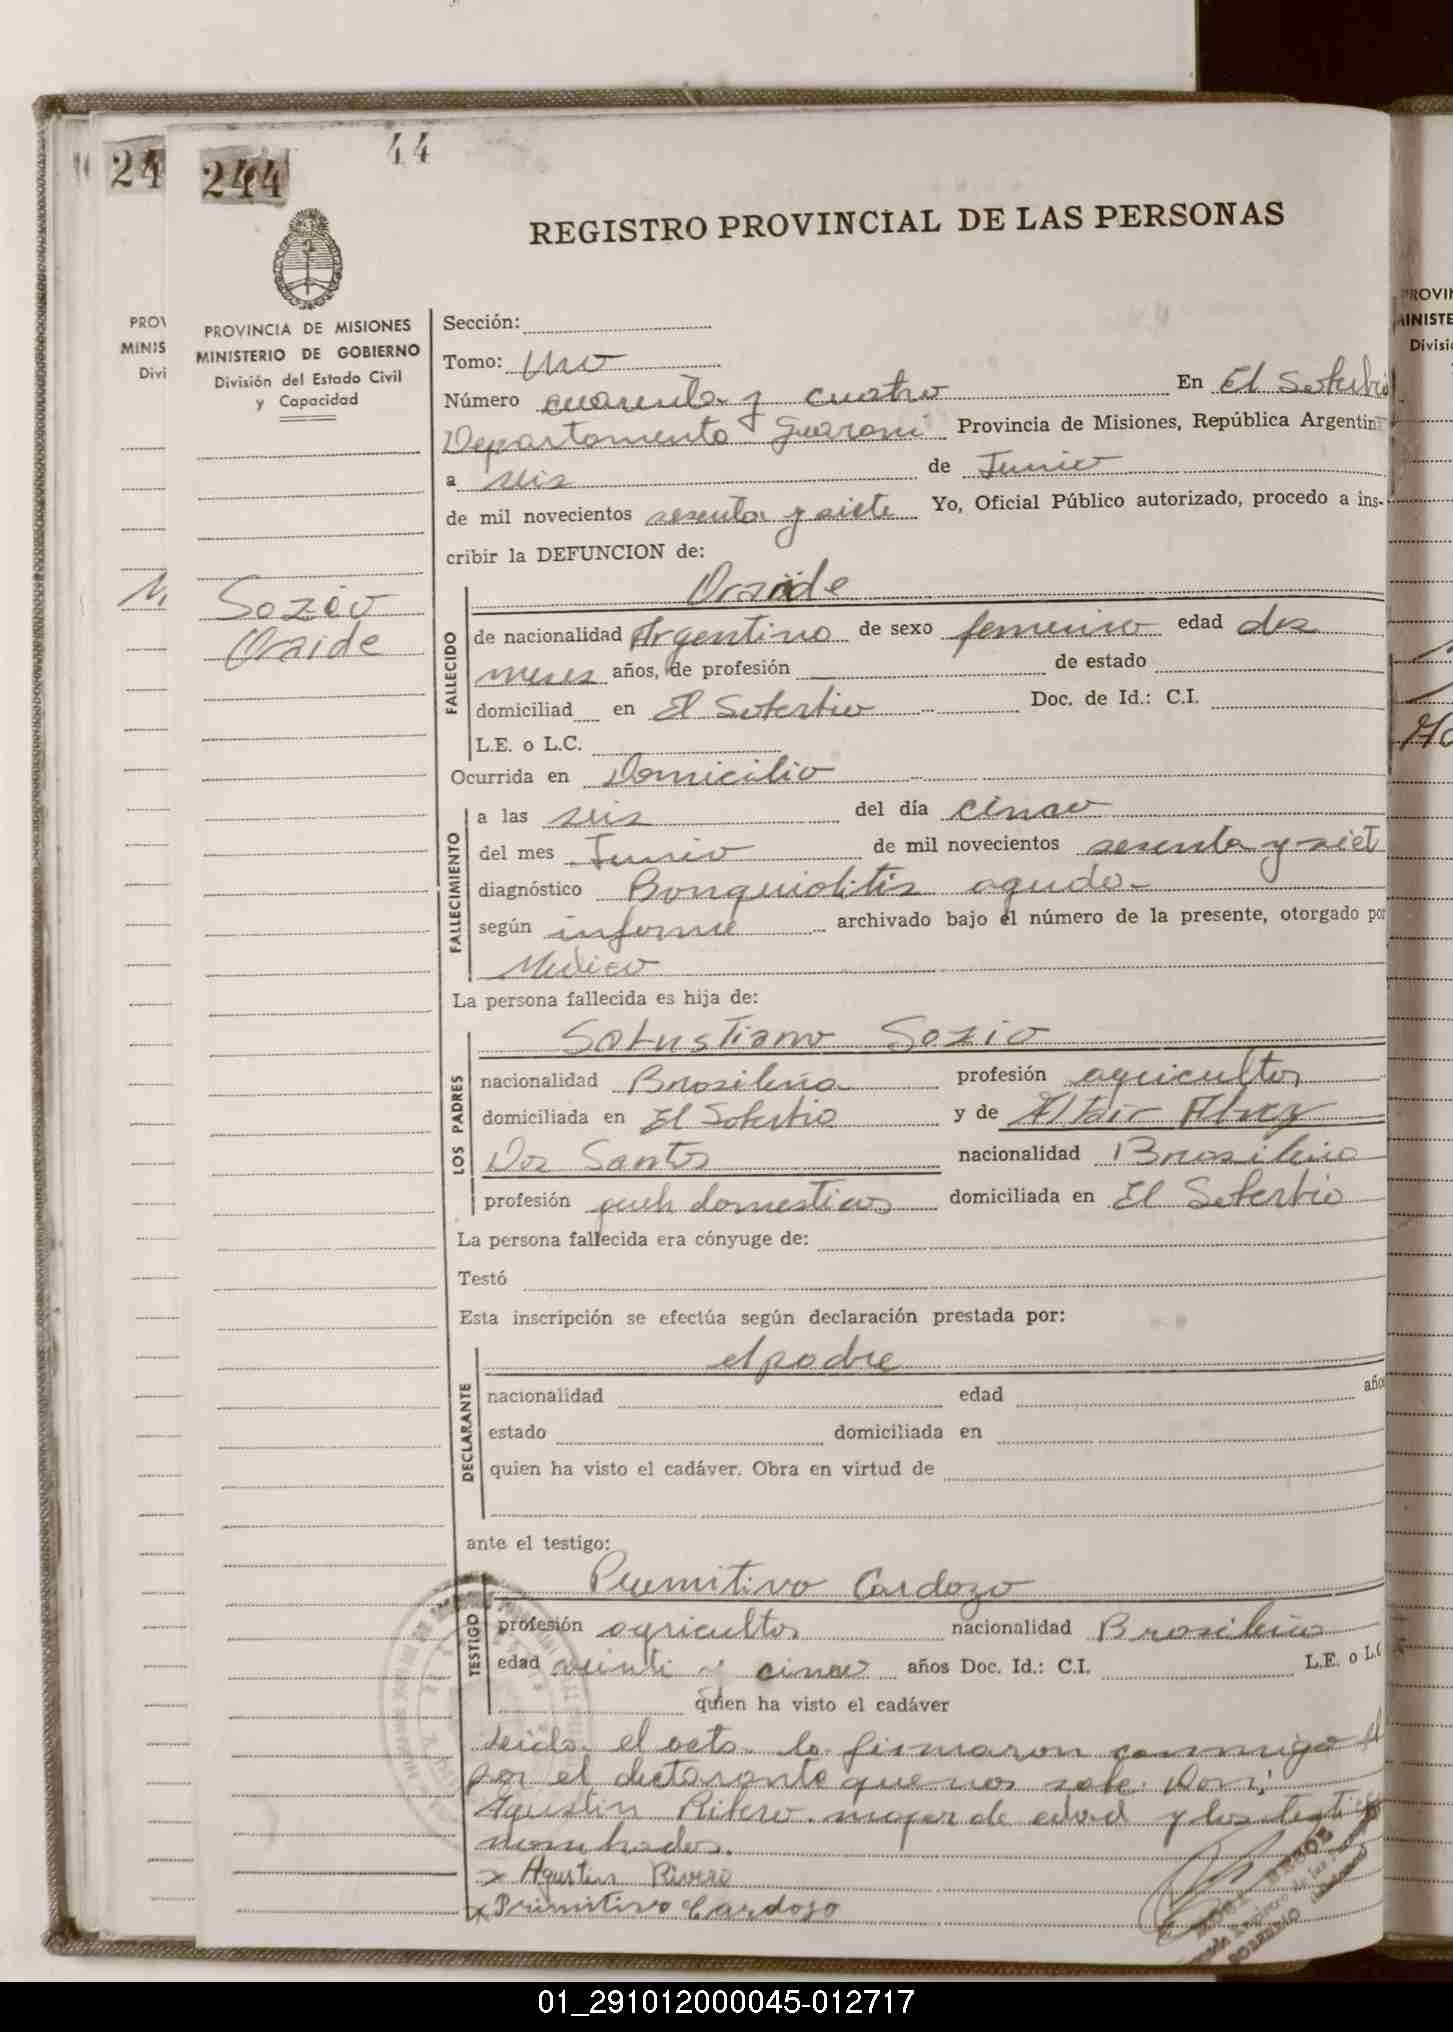 44
24
244
REGISTRO PROVINCIAL DE LAS PERSONAS
PROVINCIA DE MISIONES
MINISTERIO DE GOBIERNO
División del Estado Civil
y Capacidad
Sozio
Oraide
Sección:
Tomo: Uno
Número cuarenta y cuatro En El Soberbio
Departamento Guarani Provincia de Misiones, República Argentin
a seis de Junio
de mil novecientos sesenta y siete Yo, Oficial Público autorizado, procedo a ins-
cribir la DEFUNCION de:
FALLECIDO
Oraide
de nacionalidad Argentina de sexo femenino edad dos
meses años, de profesión de estado
domiciliad en El Soberbio Doc. de Id.: C.I.
L.E. o L.C.
Ocurrida en Domicilio
FALLECIMIENTO
a las seis del día cinco
del mes Junio de mil novecientos sesenta y siet
diagnóstico Bonquiolitis aguda
según informe archivado bajo el número de la presente, otorgado por
Medico
La persona fallecida es hija de:
LOS PADRES
Salustiano Sozio
nacionalidad Brasileña profesión agricultor
domiciliada en El Soberbio y de Altair
Dos Santos nacionalidad Brasileña
profesión queh domesticos domiciliada en El Soberbio
La persona fallecida era cónyuge de:
Testó
Esta inscripción se efectúa según declaración prestada por:
DECLARANTE
el padre
nacionalidad edad año
estado domiciliada en
quien ha visto el cadáver. Obra en virtud de
ante el testigo:
TESTIGO
Primitivo Cardozo
profesión agricultor nacionalidad Brasileña
edad veinti y cinco años Doc. Id.: C.I. L.E. o L.C
quien ha visto el cadáver
Leida el acta la firmaron conmigo
por el declarante que no sabe Don
Agustin Ribero mayor de edad y los testi
nombrados.
x Agustin Rivero
x Primitivo Cardozo
SOBERBIO
PROV
MINIS
Divi
PROVIN
MINISTE
Divisi
01_291012000045-012717